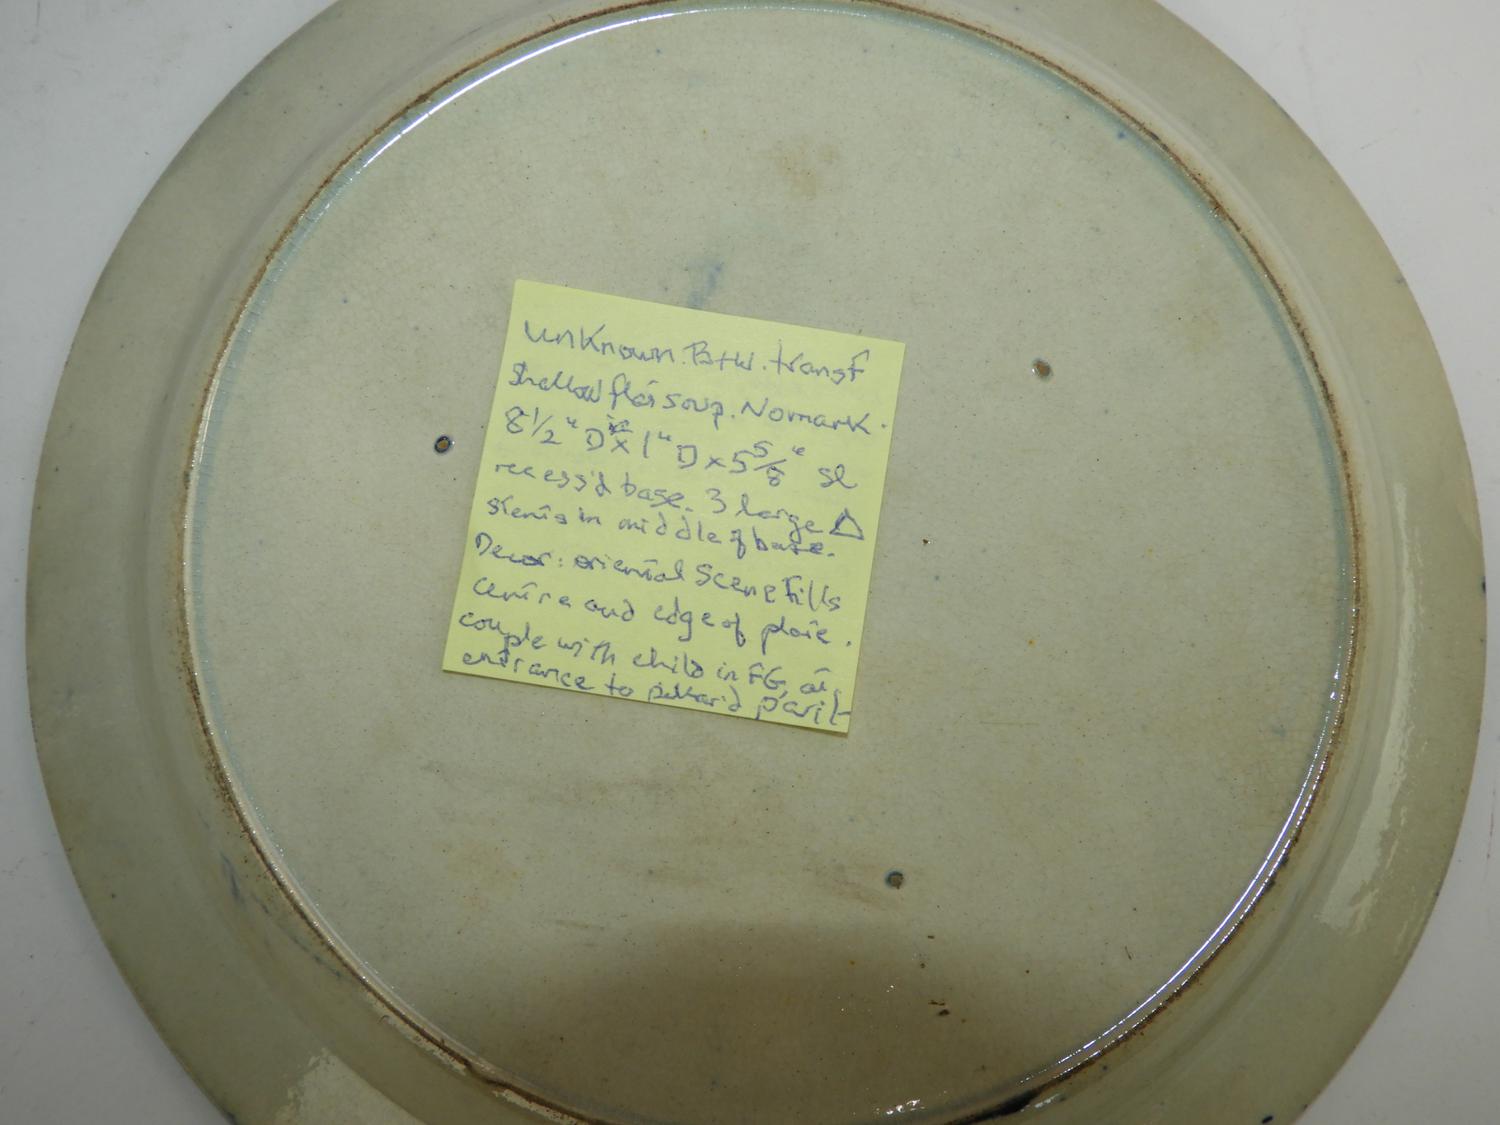 Unknown. B+W. transf
Shallow flat soup. No mark.
8 1/2" D x 1" D x 5 5/8" sl
recess'd base. 3 large △
stents in middle of base.
Decor: oriental Scene Fills
centre and edge of plate.
couple with child in FG, at
entrance to pillar'd pavil-